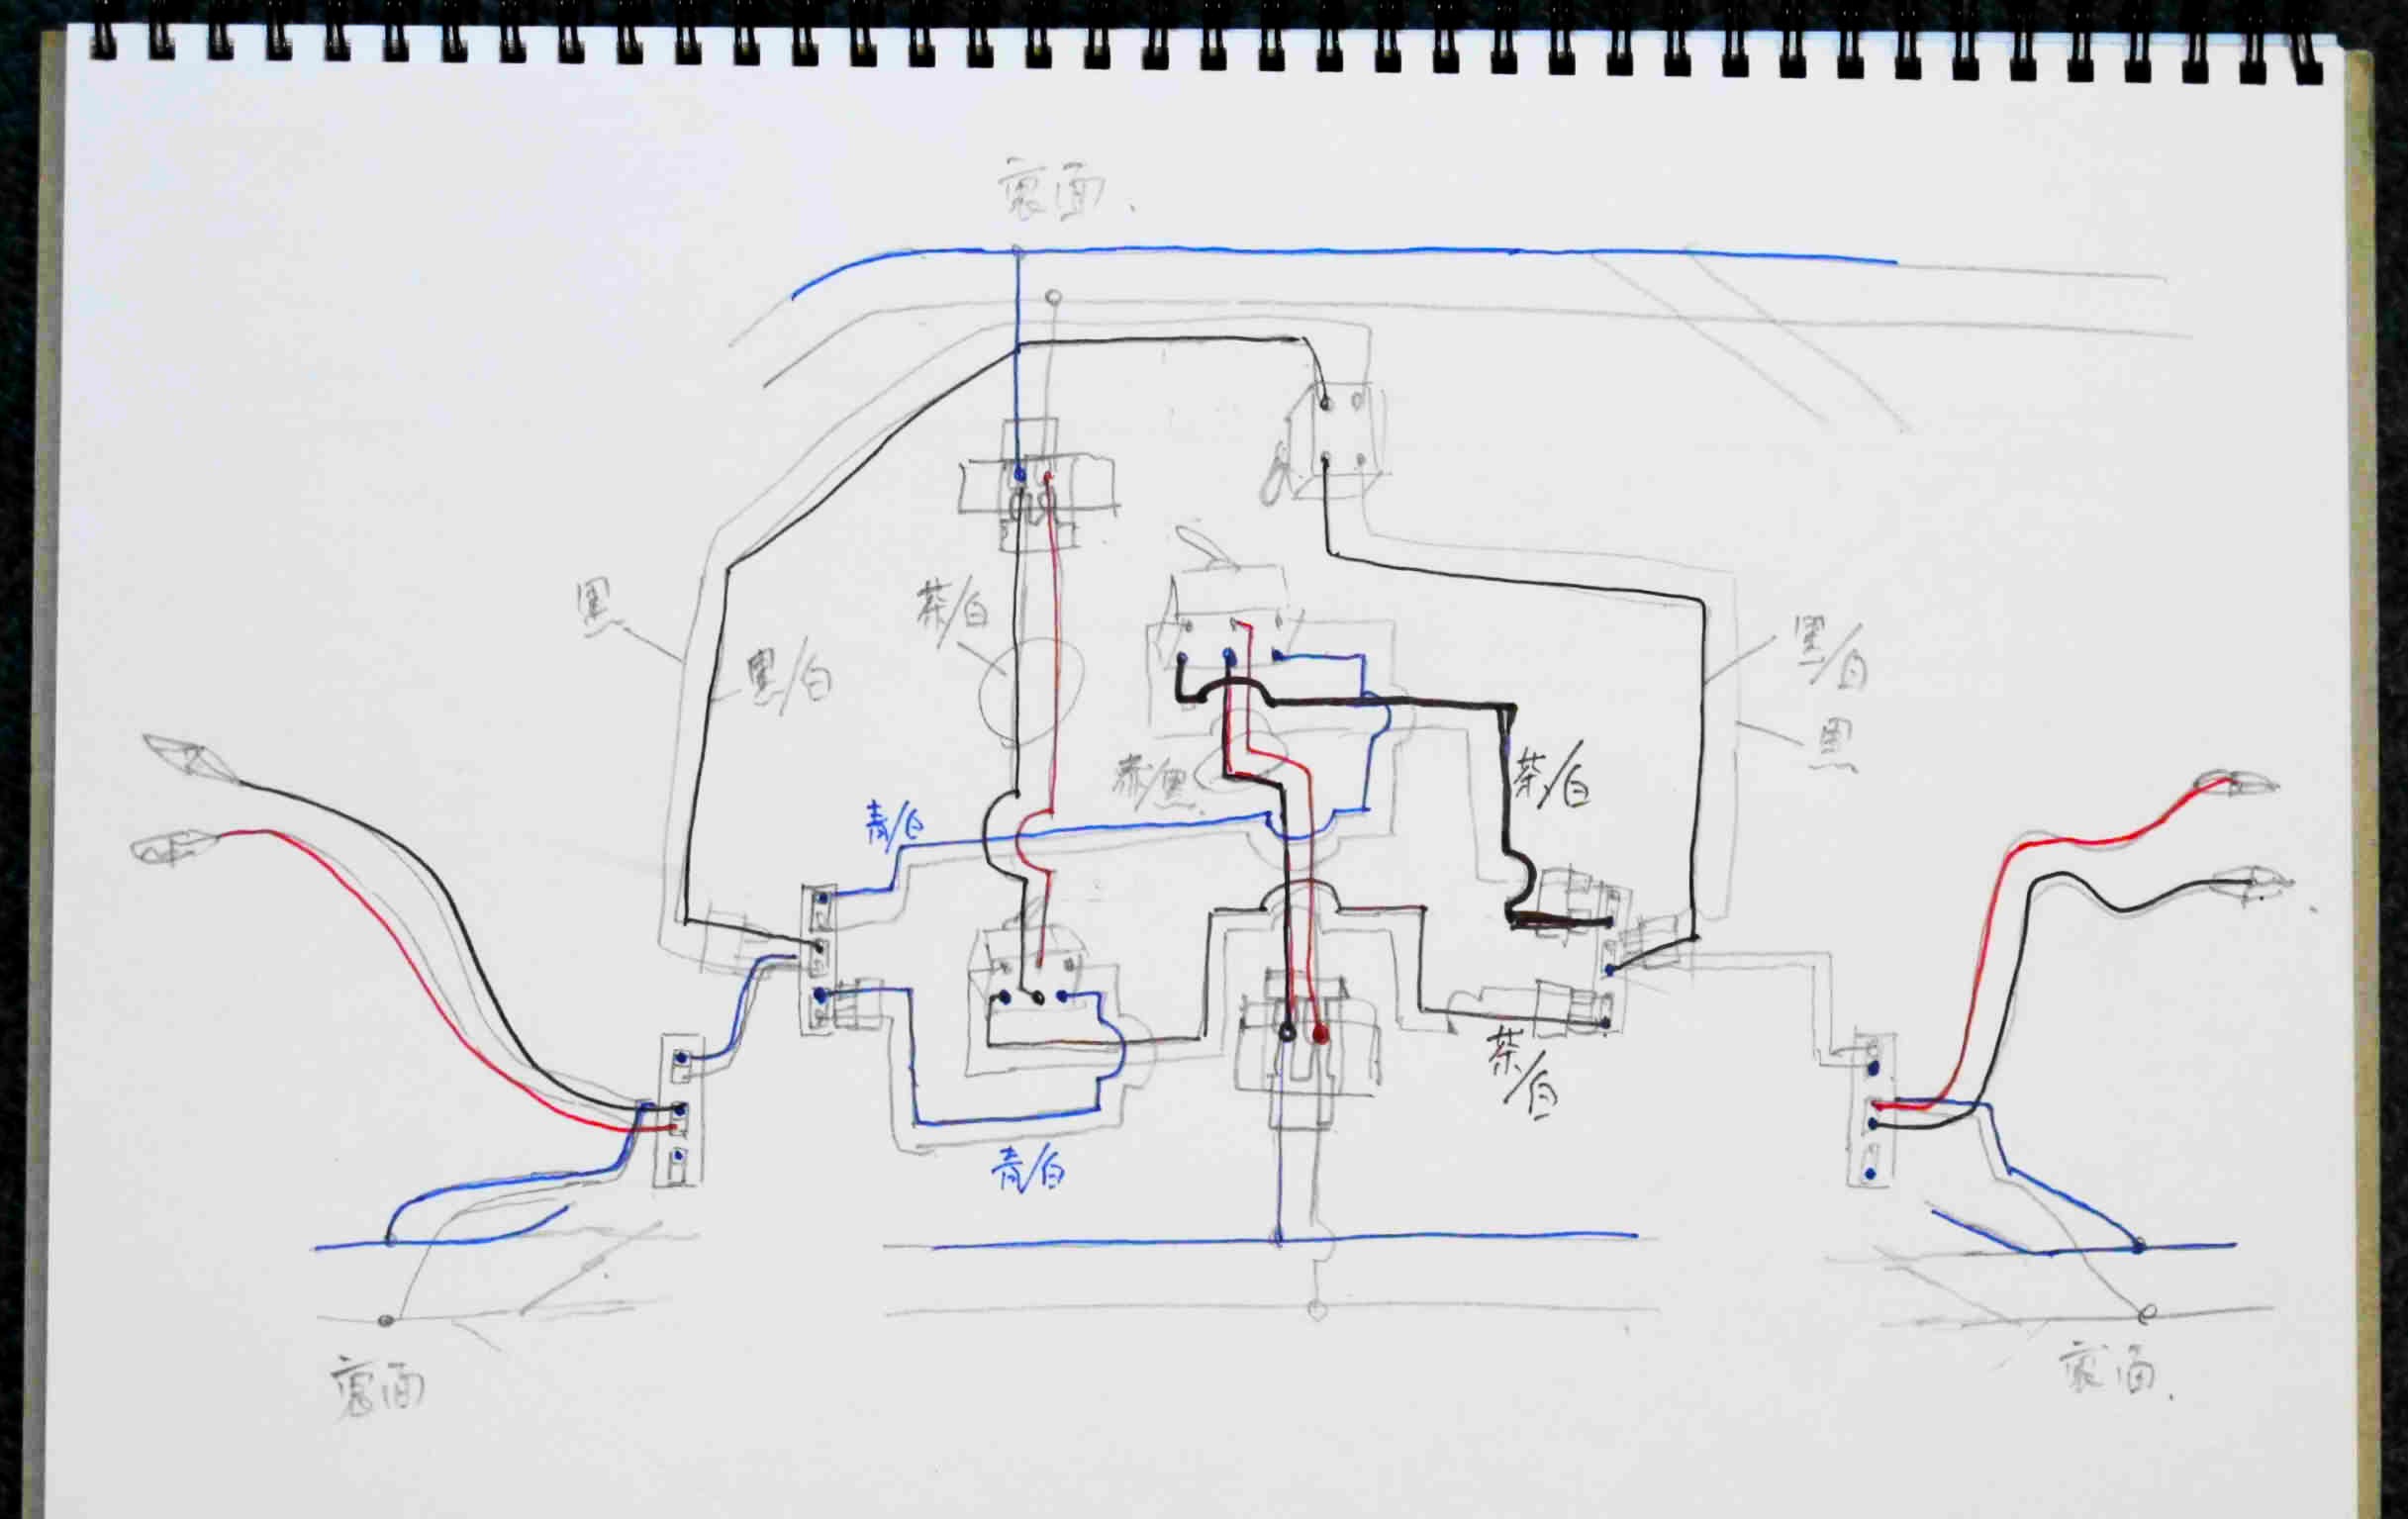 裏面.
黒
茶/白
黒/白
黒/白
黒
赤/黒
茶/白
青/白
茶/白
青/白
裏面
裏面.